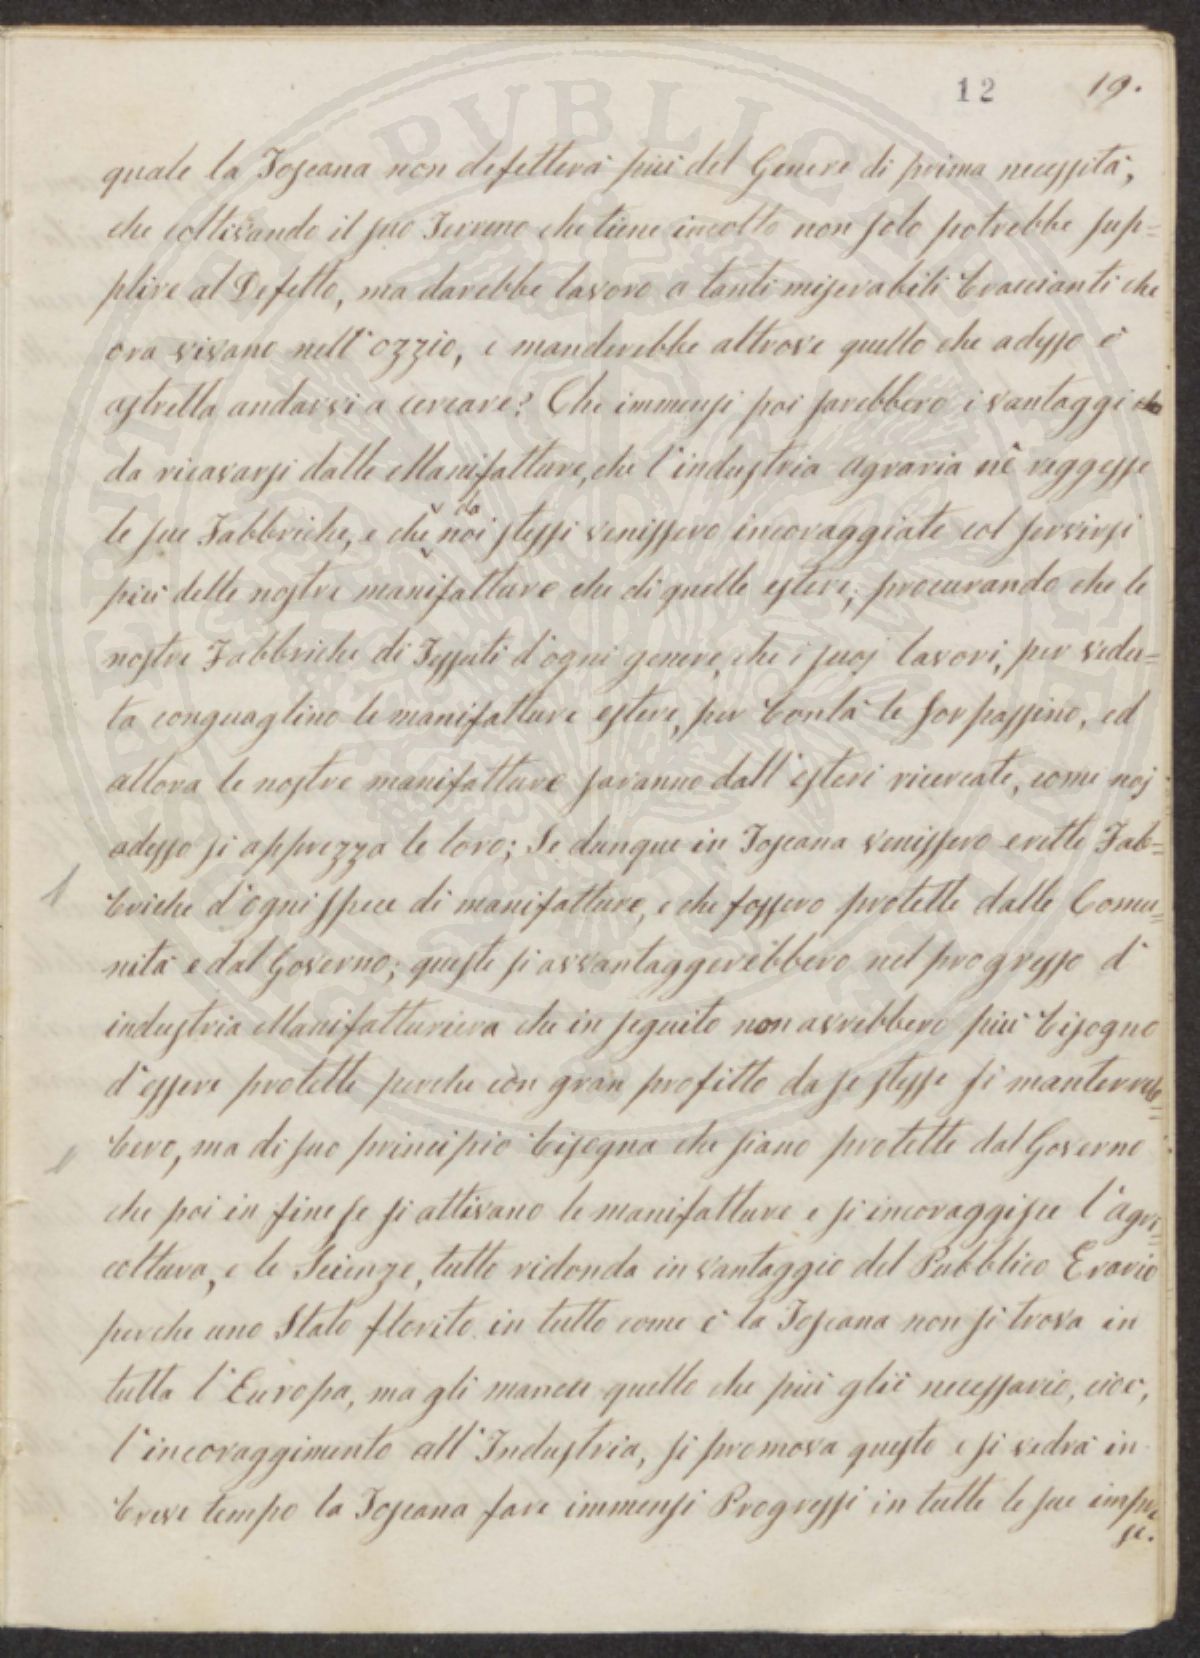 12 19.
quale la Toscana non defetterà più del Genere di prima necessità,
che coltivando il suo Terreno che tiene incolto non solo potrebbe sup=
plire al Defetto, ma darebbe lavoro a tanti miserabili braccianti che
ora vivano nell'ozzio, e manderebbe altrove quello che adesso è
astretta andarsi a cercare? Che immensi poi sarebbero i vantaggi
da ricavarsi dalle Manifatture, che l'industria agraria nè reggesse
le sue Fabbriche, e che da noi stessi venissero incoraggiate col servirsi
più delle nostre manifatture che di quelle estere; procurando che le
nostre Fabbriche di Tessuti d'ogni genere, che i suoj lavori, per vedu=
ta conguaglino le manifatture estere, per bontà le sorpassino, ed
allora le nostre manifatture saranno dall'esteri ricercate, come noj
adesso si apprezza le loro; Se dunque in Toscana venissero erette Fab=
briche d'ogni spece di manifatture, e che fossero protette dalle Comu=
nità e dal Governo; queste si avvantaggerebbero nel progresso d'
industria Manifatturiera che in seguito non avrebbero più bisogno
d'essere protette perche con gran profitto da se stesse si manterreb=
bero, ma di suo principio bisogna che siano protette dal Governo
che poi in fine se si attivano le manifatture e si incoraggisce l'agri=
coltura, e le Scienze, tutto ridonda in vantaggio del Pubblico Erario
perche uno Stato florito in tutto come è la Toscana non si trova in
tutta l'Europa, ma gli manca quello che più gliè necessario, cioè,
l'incoraggimento all'Industria, si promova questo e si vedrà in
breve tempo la Toscana fare immensi Progressi in tutte le sue impre
se.